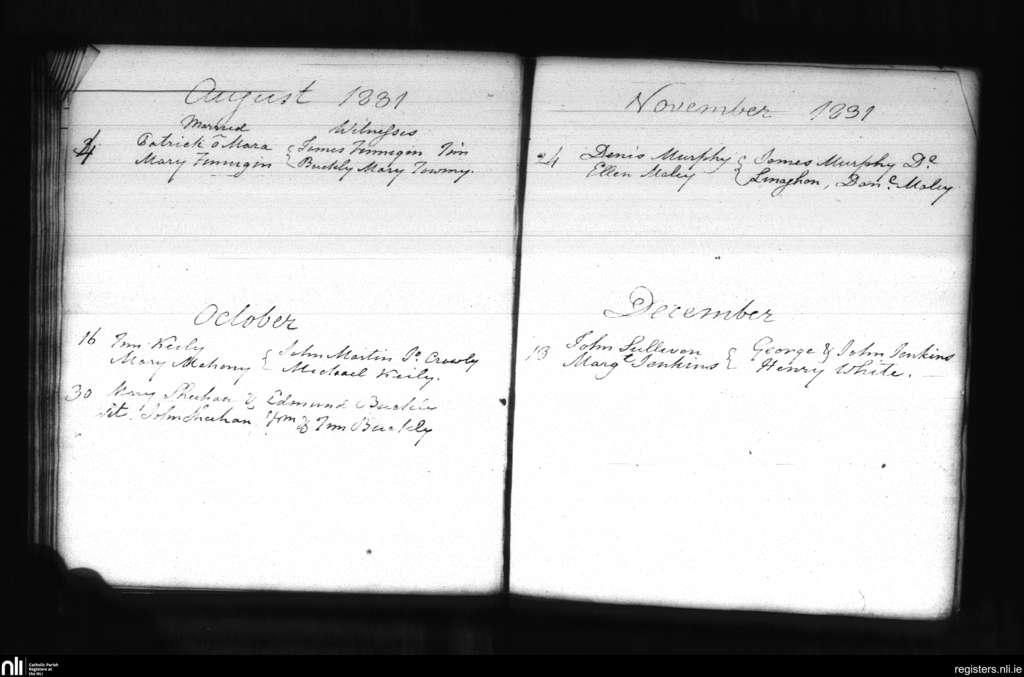 August 1831
Married Witnesses
4 Patrick o Mara { James Finnegin Tim
Mary Finnegin { Buckly Mary Towmy.
October
16 Tim Keily { John Martin Jo. Crowly
Mary Mahony { Michael Keily.
30 Mary Sheehan & Edmund Buckly
Wit. John Sheehan & Tim Buckly
November 1831
24 Denis Murphy { James Murphy Ds
Ellen Maley { Linaghan, Danl. Maley
December
13 John Sullivan { George & John Jenkins
Margt Jenkins { Henry White.
nli Catholic Parish
Registers at
the NLI
registers.nli.ie